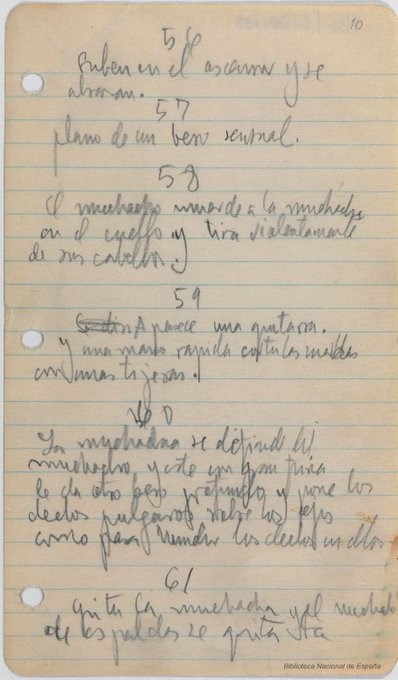 10
56
Suben en el ascensor y se
abrazan.
57
plano de un beso sensual.
58
El muchacho muerde a la muchacha
en el cuello y tira violentamente
de sus cabellos.
59
Aparece una guitarra.
y una mano rapida corta las cuerdas
con unas tijeras.
60
La muchacha se defiende del
muchacho, y este con gran furia
le da otro beso profundo y pone los
dedos pulgares sobre los ojos
como para hundir los dedos en ellos
61
Grita la muchacha y el muchacho
de espaldas se quita la
Biblioteca Nacional de España